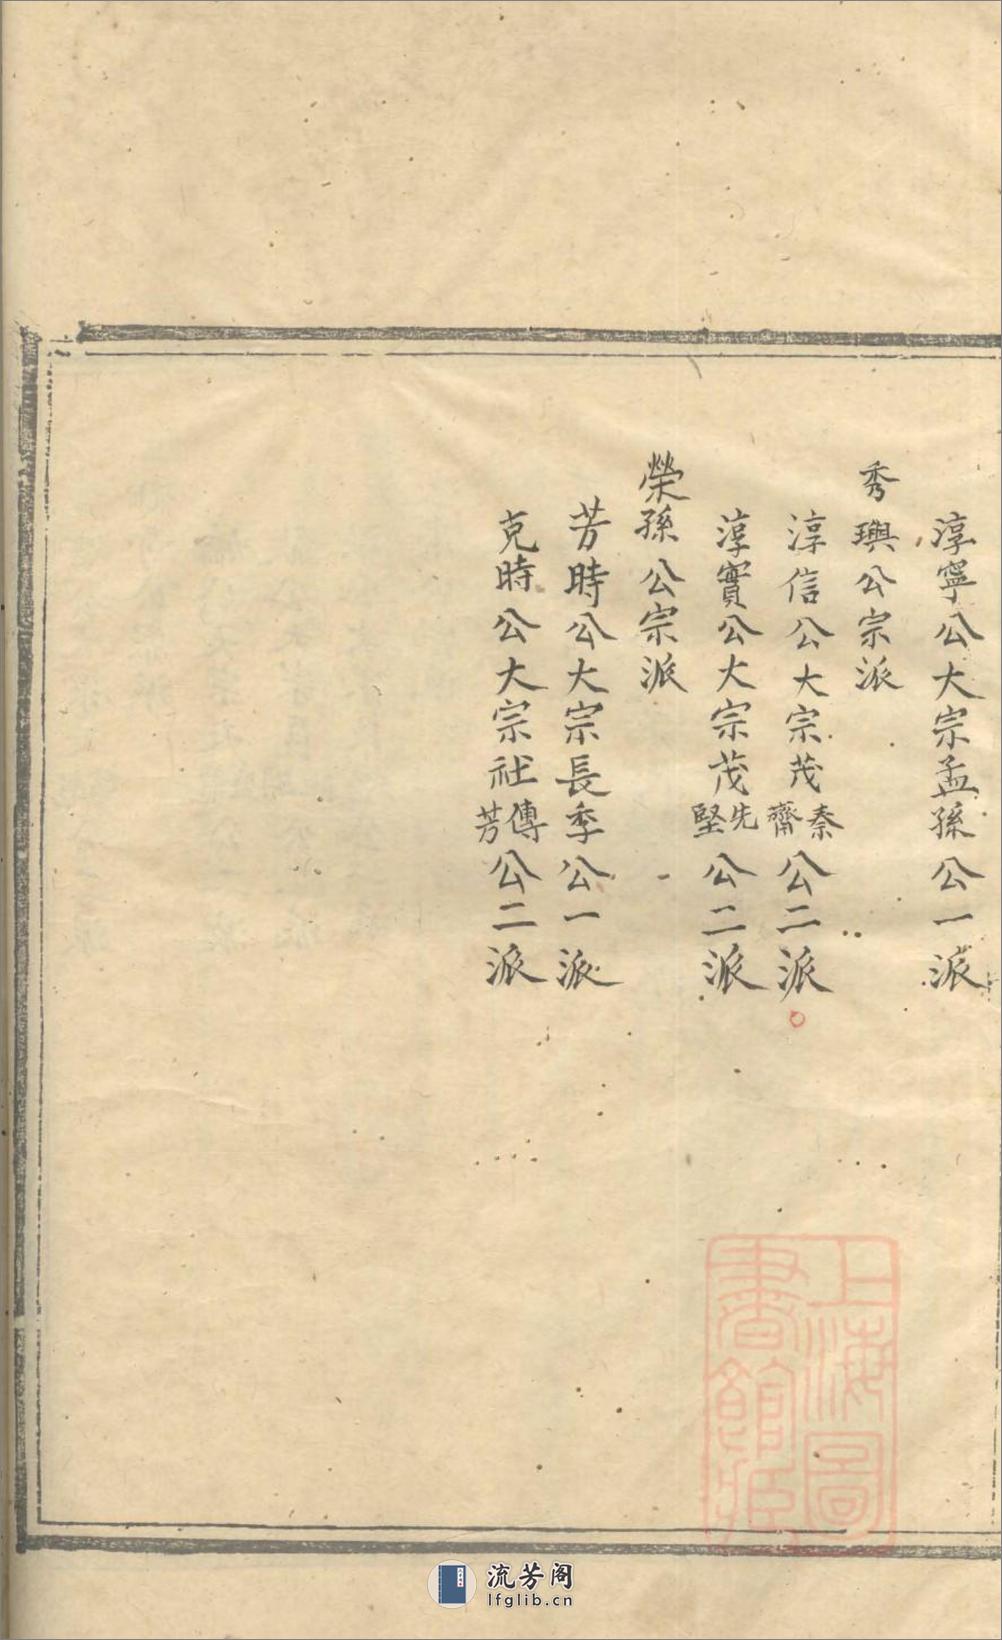 淳寧公大宗孟孫公一派
秀璵公宗派
淳信公大宗茂秦齋公二派
淳實公大宗茂先堅公二派
榮孫公宗派
芳時公大宗長季公一派
克時公大宗社傳芳公二派
上海圖
書館藏
流芳阁
lfglib.cn